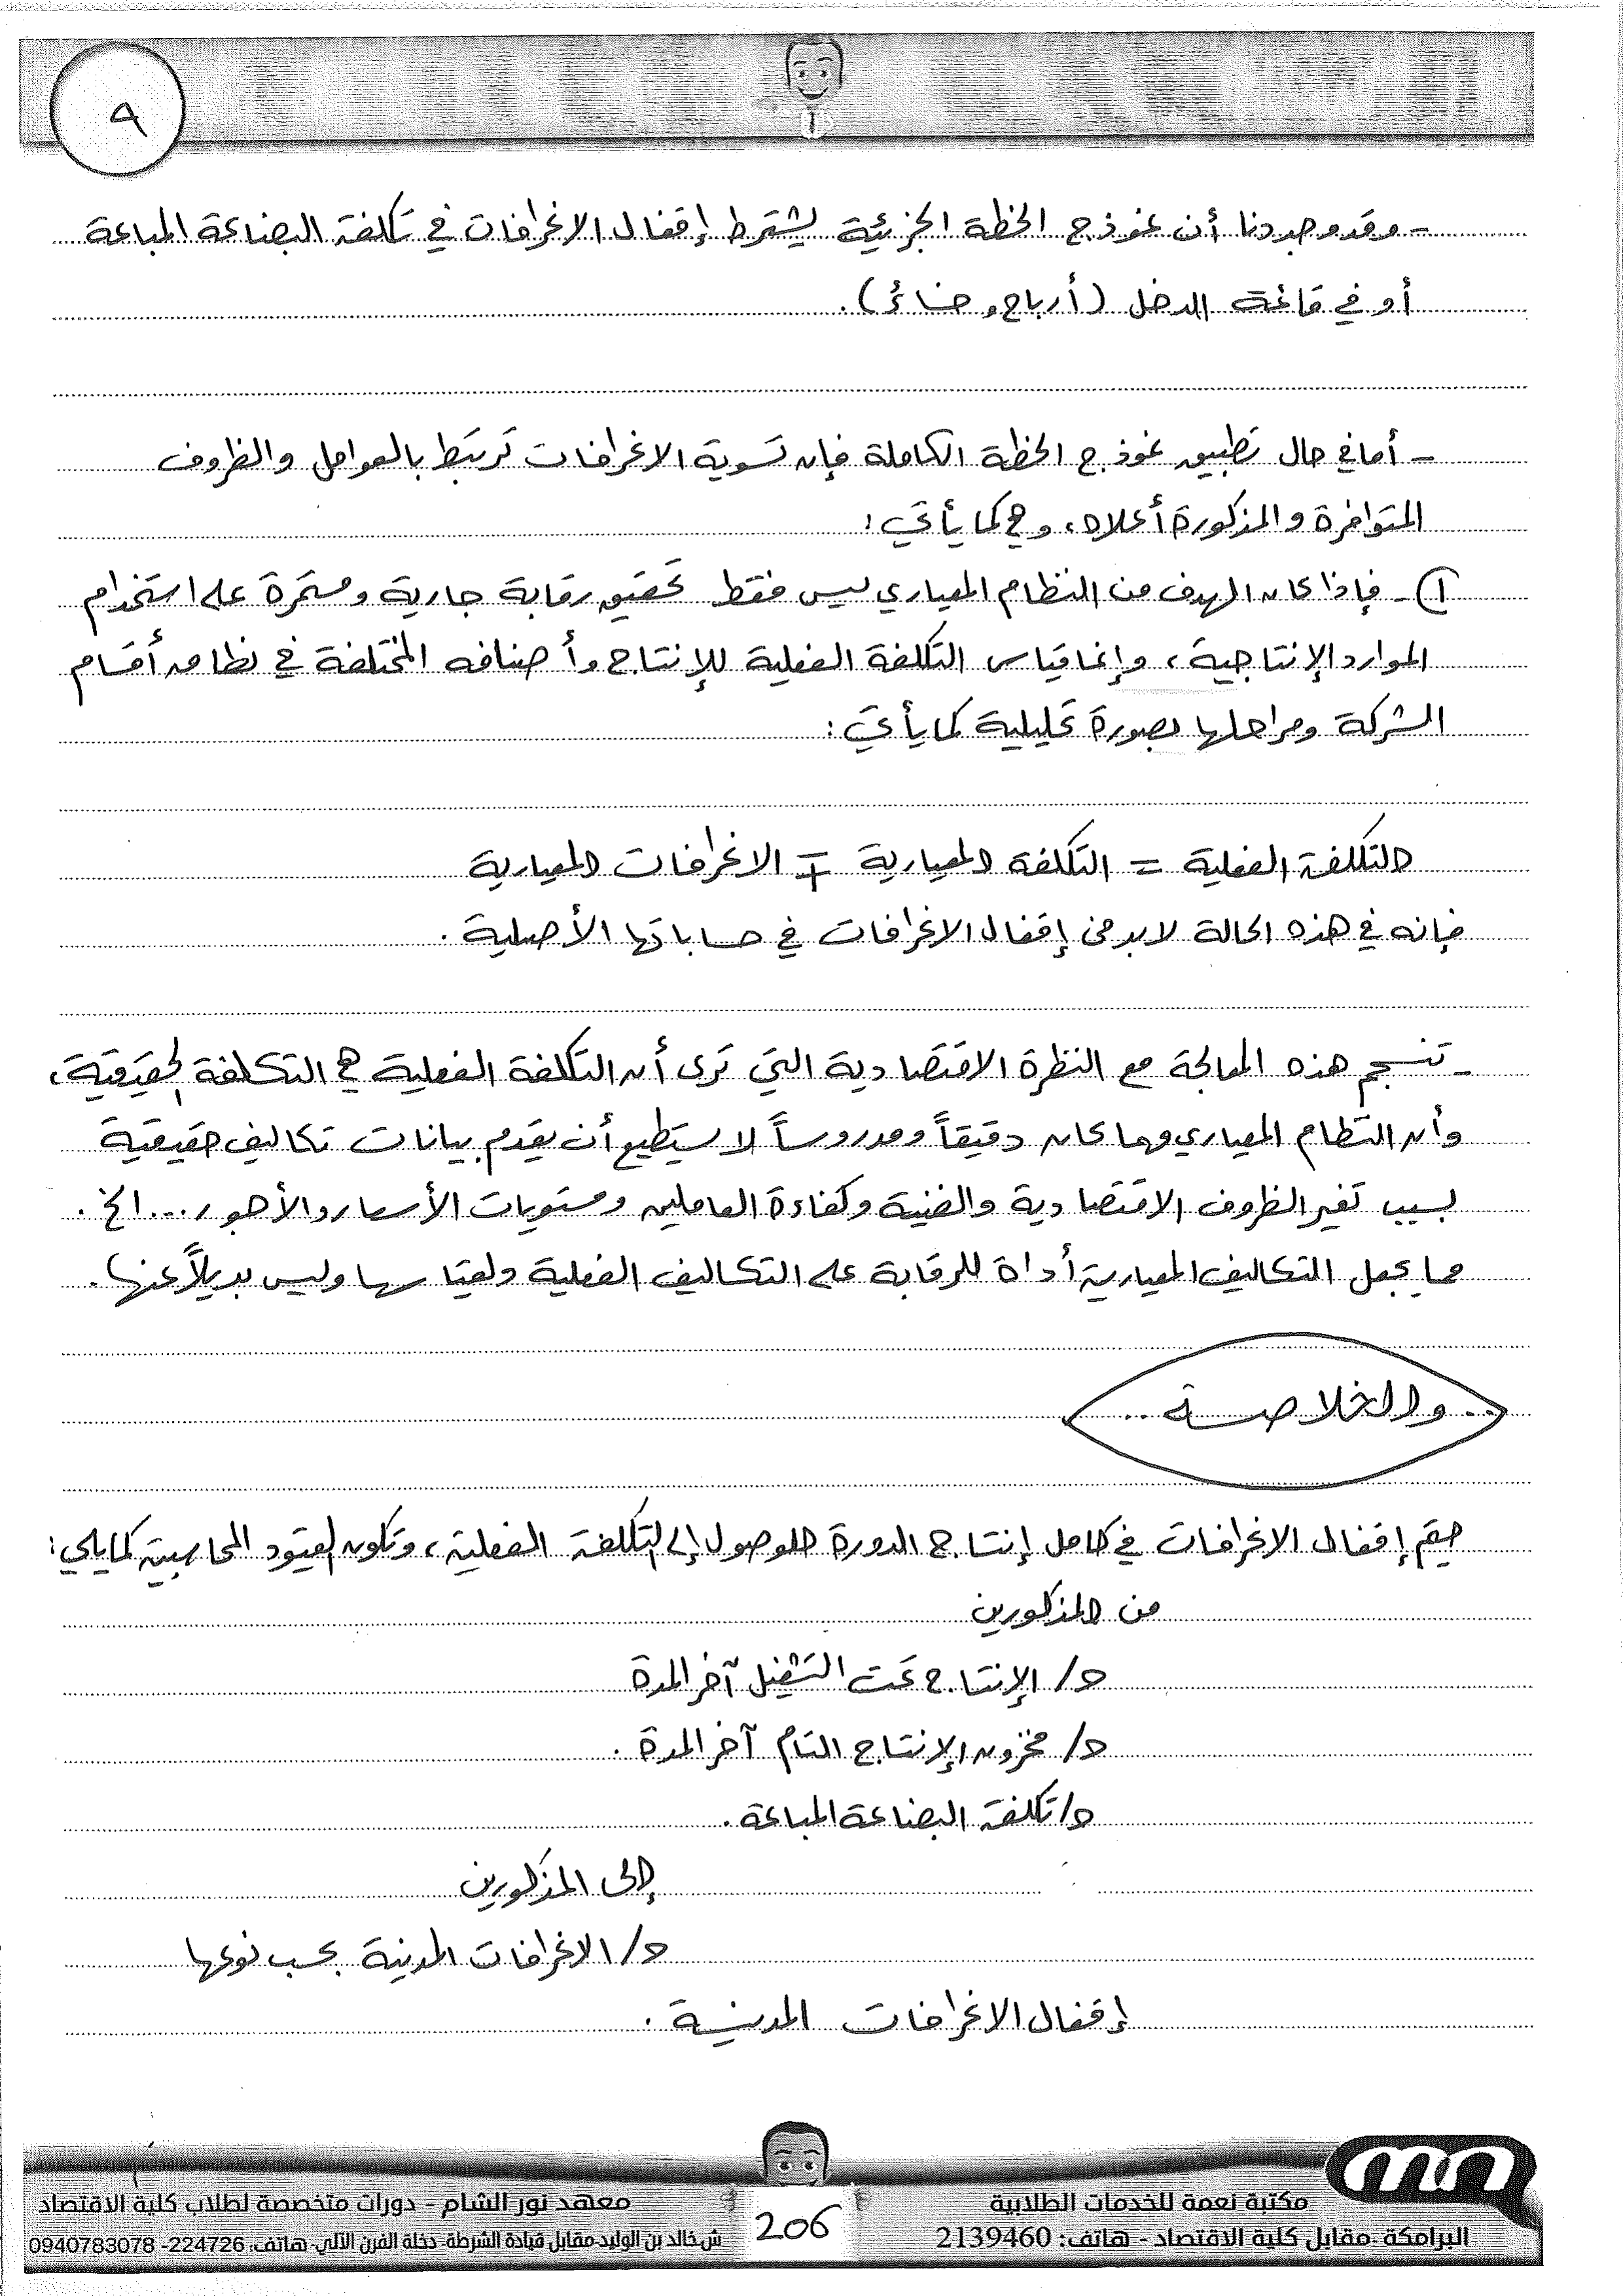 ٩
- وقد وجدنا أن نموذج الخطة الجزئية يشترط إقفال الانحرافات في تكلفة البضاعة المباعة
أو في قائمة الدخل (أرباح وخسائر).
- أما في حال تطبيق نموذج الخطة الكاملة فإن تسوية الانحرافات ترتبط بالعوامل والظروف
المتوافرة والمذكورة أعلاه، وهي كما يأتي:
١) - فإذا كان الهدف من النظام المعياري ليس فقط تحقيق رقابة جارية ومستمرة على استخدام
الموارد الإنتاجية، وإنما قياس التكلفة الفعلية للإنتاج وأصنافه المختلفة في نطاق أقسام
الشركة ومراحلها بصورة تحليلية كما يأتي:
التكلفة الفعلية = التكلفة المعيارية ∓ الانحرافات المعيارية
فإنه في هذه الحالة لا بد من إقفال الانحرافات في حساباتها الأصلية.
- تنسجم هذه المعالجة مع النظرة الاقتصادية التي ترى أن التكلفة الفعلية هي التكلفة الحقيقية،
وأن النظام المعياري مهما كان دقيقاً ومدروساً لا يستطيع أن يقدم بيانات تكاليف حقيقية
بسبب تغير الظروف الاقتصادية والفنية وكفاءة العاملين ومستويات الأسعار والأجور ... الخ.
مما يجعل التكاليف المعيارية أداة للرقابة على التكاليف الفعلية ولقياسها وليس بديلاً عنها.
.. والخلاصة ..
يتم إقفال الانحرافات في كامل إنتاج الدورة للوصول إلى التكلفة الفعلية، وتكون القيود المحاسبية كما يلي:
من المذكورين
ح/ الإنتاج تحت التشغيل آخر المدة
ح/ مخزون الإنتاج التام آخر المدة.
ح/ تكلفة البضاعة المباعة.
إلى المذكورين
ح/ الانحرافات المدينة بحسب نوعها
إقفال الانحرافات المدينة.
مكتبة نعمة للخدمات الطلابية
البرامكة -مقابل كلية الاقتصاد - هاتف: 2139460
206
معهد نور الشام - دورات متخصصة لطلاب كلية الاقتصاد
ش خالد بن الوليد-مقابل قيادة الشرطة- دخلة الفرن الآلي- هاتف: 224726- 0940783078